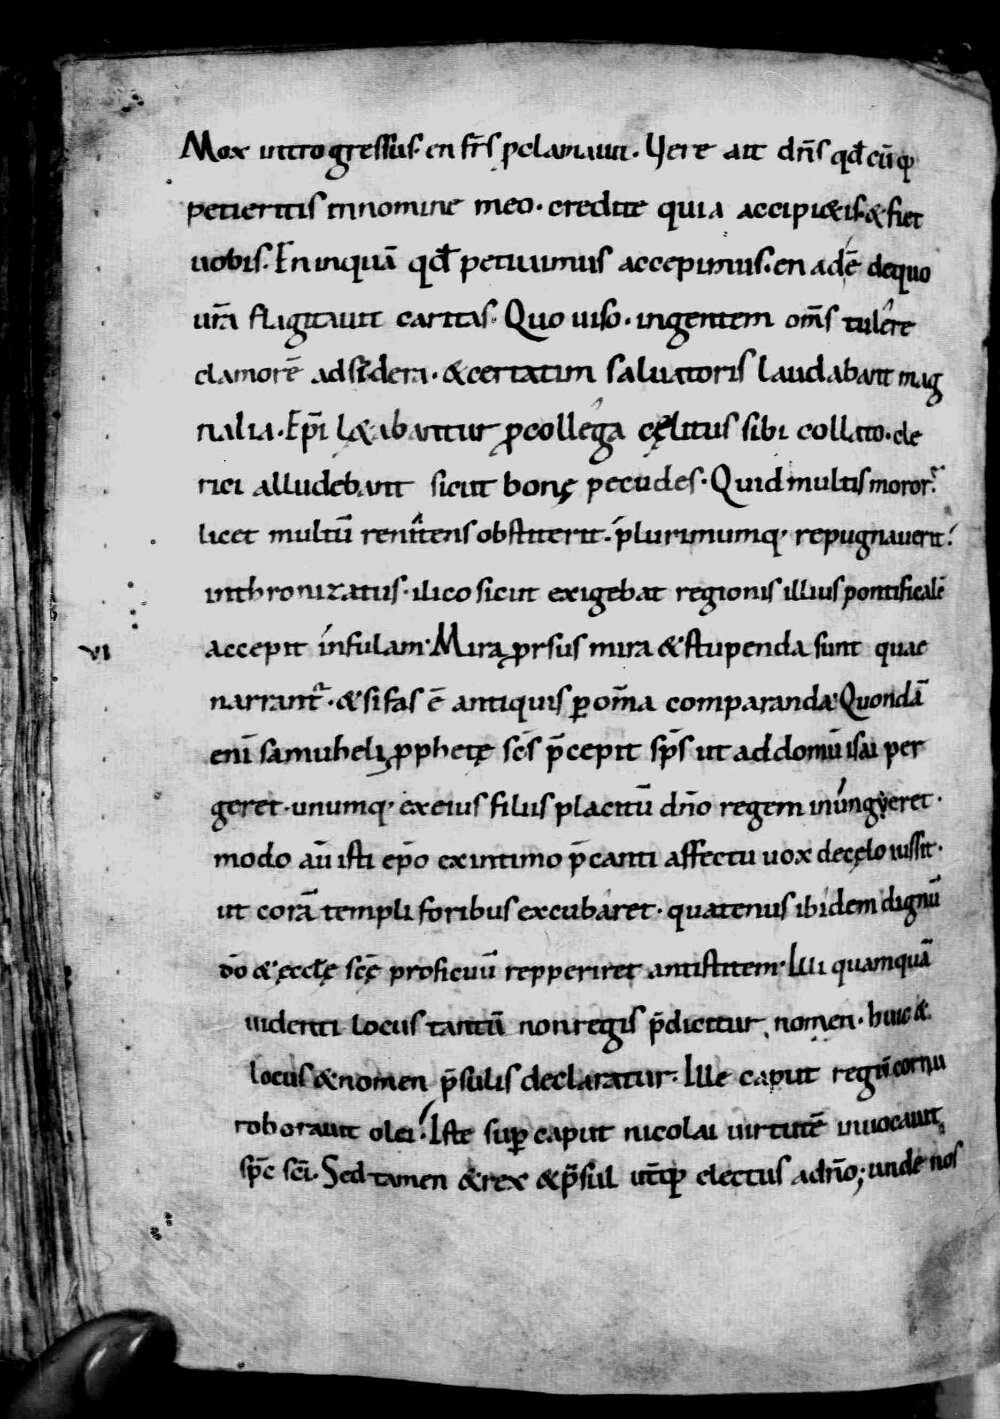 Mox introgressus. en fr̄s pclamauit. Uere ait dn̄s qd̄ cūq;
petieritis innomine meo. credite quia accipi&is. & fiet
uobis. En inquā qd̄ petiuimus accepimus. en adē dequo
ur̄a flagitauit caritas. Quo uiso. ingentem om̄s tulere
clamorē adsidera. & certatim saluatoris laudabant mag
nalia. Ep̄i l&abantur ꝓcollega cęlitus sibi collato. cle
rici alludebant sicut bonę pecudes. Quid multis moror?
licet multū renitens obstiterit. plurimumq; repugnauerit.
inthronizatus. ilico sicut exigebat regionis illius pontificalē
accepit ínfulam. Mira ꝓrsus mira & stupenda sunt quae
VI
narrant̄. & si fas ē antiquis ꝑ om̄a comparanda. Quondā
enī samuheli ꝓphetę sc̄s p̄cepit sp̄s ut addomū isai per
geret. unumq; exeius filiis placitū dn̄o regem inungyeret.
modo aū isti ep̄o exintimo p̄canti affectu uox decęlo iussit.
ut corā templi foribus excubaret. quatenus ibidem dignū
dō & ęcclę scę̄ proficuū repperiret antistitem. Illi quamquā
uidenti locus tantū non regis p̄dicitur nomen. huic &
locus & nomen p̄sulis declaratur. Ille caput regū cornu
roborauit olei. Iste suꝑ caput nicolai uirtutē inuocauit
sp̄c sc̄i. Sed tamen & rex & p̄sul ut̄q; electus adn̄o; unde nos